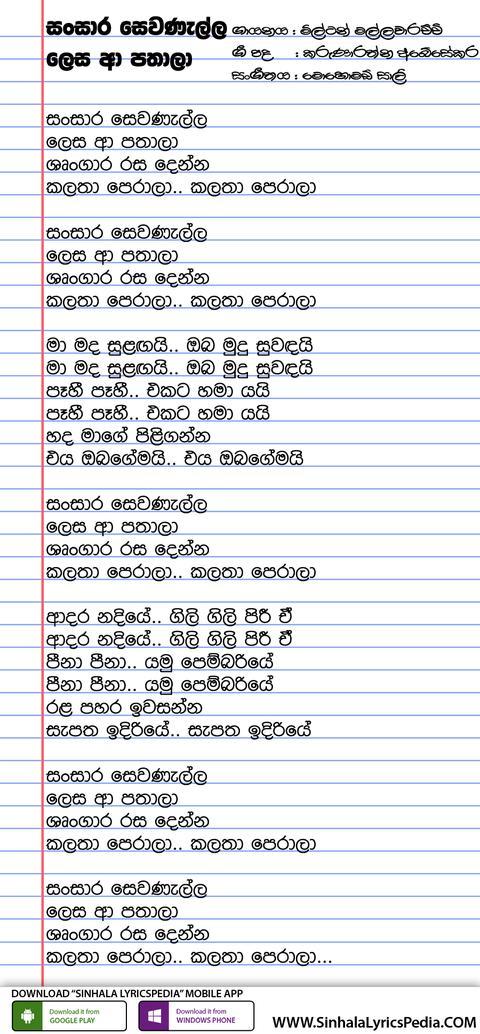 සංසාර සෙවණැල්ල
ලෙස ආ පතාලා
ගායනය : මිල්ටන් මල්ලවාරච්චි
ගී පද : කරුණාරත්න අබේසේකර
සංගීතය : මොහොමඩ් සාලි
සංසාර සෙවණැල්ල
ලෙස ආ පතාලා
ශෘංගාර රස දෙන්න
කලතා පෙරාලා.. කලතා පෙරාලා
සංසාර සෙවණැල්ල
ලෙස ආ පතාලා
ශෘංගාර රස දෙන්න
කලතා පෙරාලා.. කලතා පෙරාලා
මා මද සුළඟයි.. ඔබ මුදු සුවඳයි
මා මද සුළඟයි.. ඔබ මුදු සුවඳයි
පෑහී පෑහී.. එකට හමා යයි
පෑහී පෑහී.. එකට හමා යයි
හද මාගේ පිළිගන්න
එය ඔබගේමයි.. එය ඔබගේමයි
සංසාර සෙවණැල්ල
ලෙස ආ පතාලා
ශෘංගාර රස දෙන්න
කලතා පෙරාලා.. කලතා පෙරාලා
ආදර නදියේ.. ගිලි ගිලි පිරී ඒ
ආදර නදියේ.. ගිලි ගිලි පිරී ඒ
පීනා පීනා.. යමු පෙම්බරියේ
පීනා පීනා.. යමු පෙම්බරියේ
රළ පහර ඉවසන්න
සැපත ඉදිරියේ.. සැපත ඉදිරියේ
සංසාර සෙවණැල්ල
ලෙස ආ පතාලා
ශෘංගාර රස දෙන්න
කලතා පෙරාලා.. කලතා පෙරාලා
සංසාර සෙවණැල්ල
ලෙස ආ පතාලා
ශෘංගාර රස දෙන්න
කලතා පෙරාලා.. කලතා පෙරාලා...
DOWNLOAD “SINHALA LYRICSPEDIA” MOBILE APP
Download it from
GOOGLE PLAY
Download it from
WINDOWS PHONE
WWW.SinhalaLyricsPedia.COM